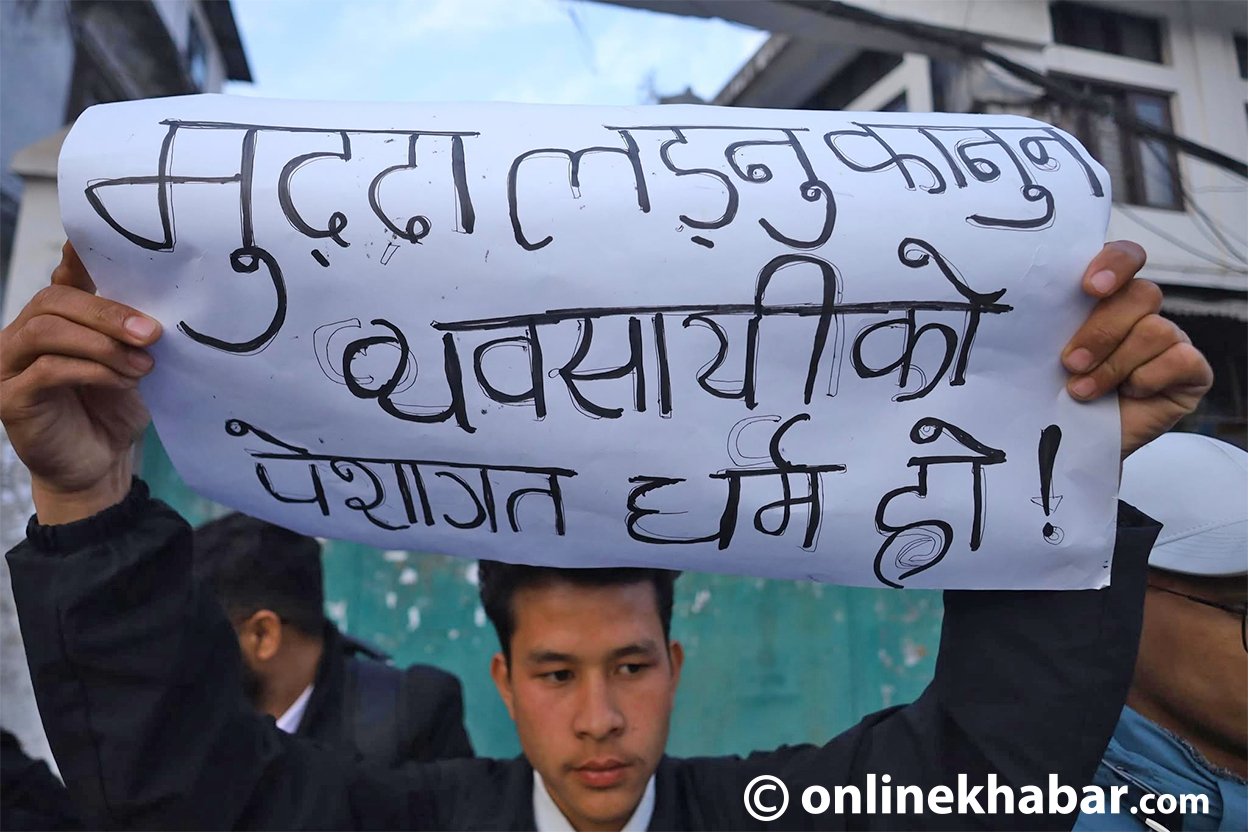 मुद्दा लड्नु कानुन
व्यवसायीको
पेशागत धर्म हो!
© onlinekhabar.com